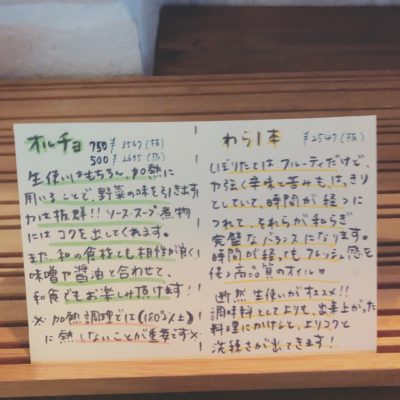 オルチョ 750 ¥3567(抜)
500 ¥2695(抜)
生使いはもちろん、加熱に
用いることで、野菜の味を引き出す
力は抜群!! ソース・スープ・煮物
にはコクを出してくれます。
また、和の食材とも相性が良く
味噌や醤油と合わせて、
和食でもお楽しみ頂けます!
※加熱調理では(180°以上)
に熱しないことが重要です※
わら1本 ¥2547(抜)
しぼりたてはフルーティだけで、
力強く辛味と苦みも、はっきり
としていて、時間が経つに
つれて、それらが和らぎ
完璧なバランスになります。
時間が経ってもフレッシュ感を
保つ高品質のオイル
断然生使いがオススメ!!
調味料としてよりも、出来上がった
料理にかけると、よりコクと
洗練さが出てきます!